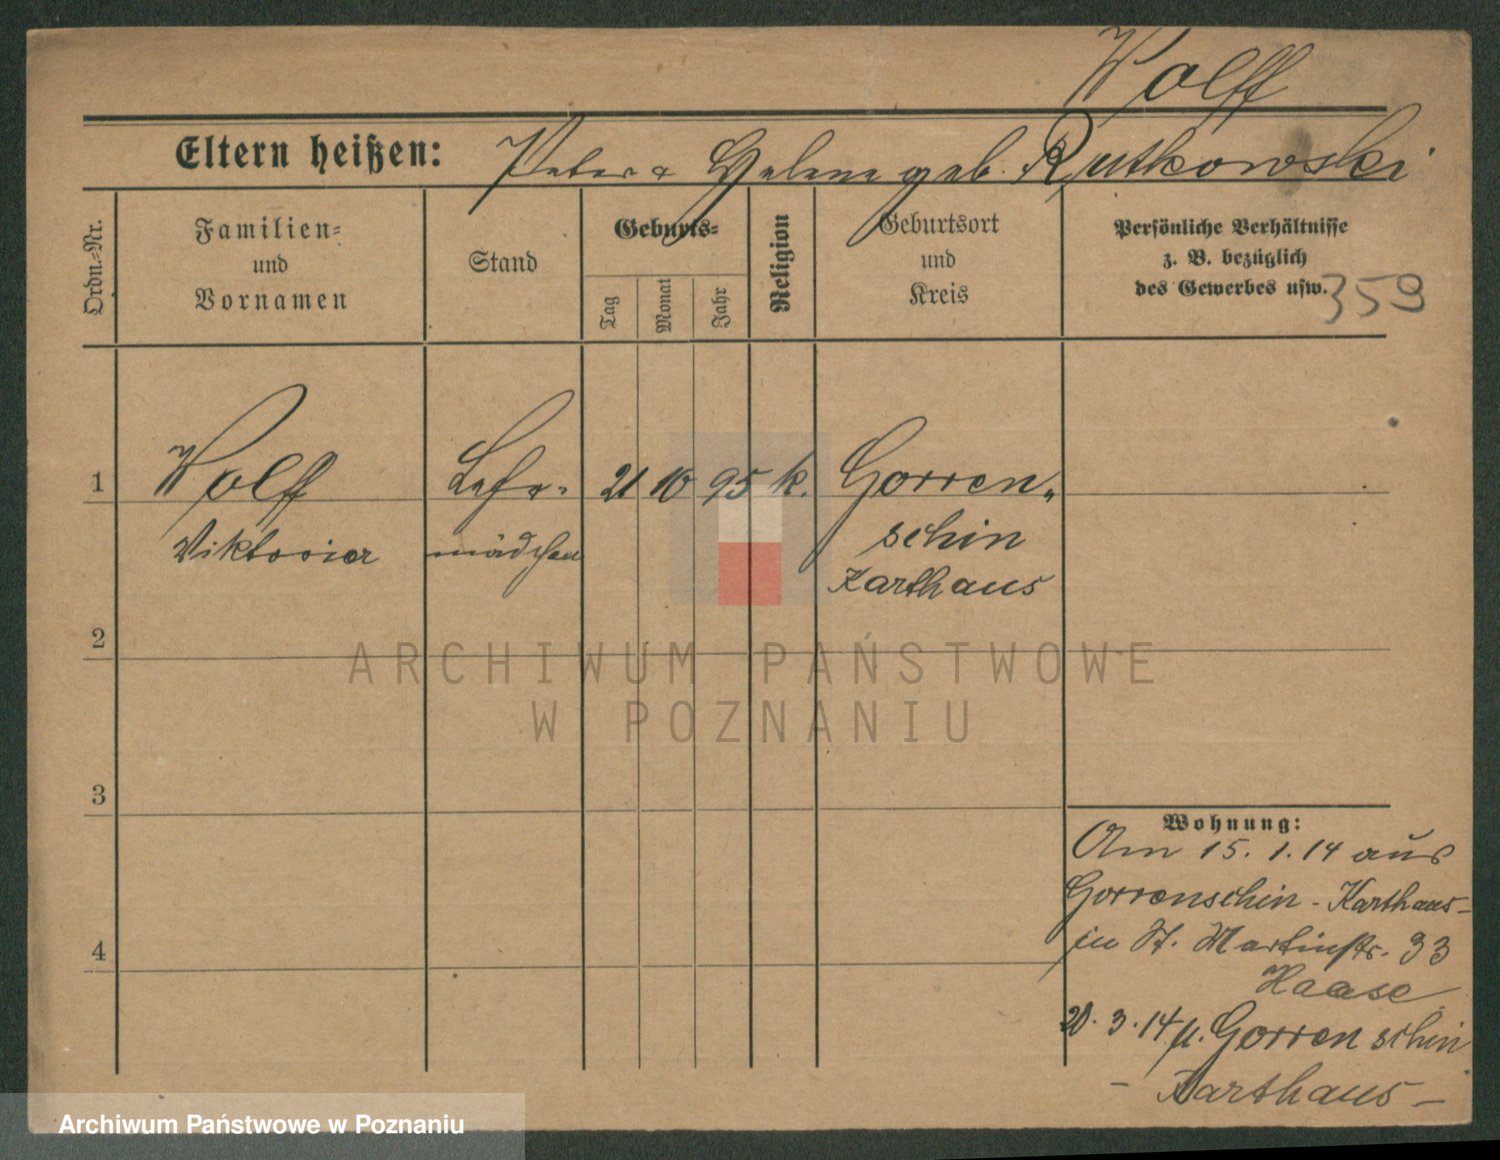 Wolff
Eltern heißen: Peter & Helene geb. Rutkowski
Ordn.-Nr.
Familien-
und
Vornamen
Stand
Geburts-
Tag
Monat
Jahr
Religion
Geburtsort
und
Kreis
Persönliche Verhältnisse
z. B. bezüglich
des Gewerbes usw.
359
1 Wolff Lehr- 21 10 95 k. Gorren-
Viktoria mädchen schin
Karthaus
2
ARCHIWUM PAŃSTWOWE
W POZNANIU
3
Wohnung:
Am 15. 1. 14 aus
Gorrenschin - Karthaus -
in St. Martinstr. 33
4
Haase
20. 3. 14 n. Gorrenschin
- Karthaus -
Archiwum Państwowe w Poznaniu